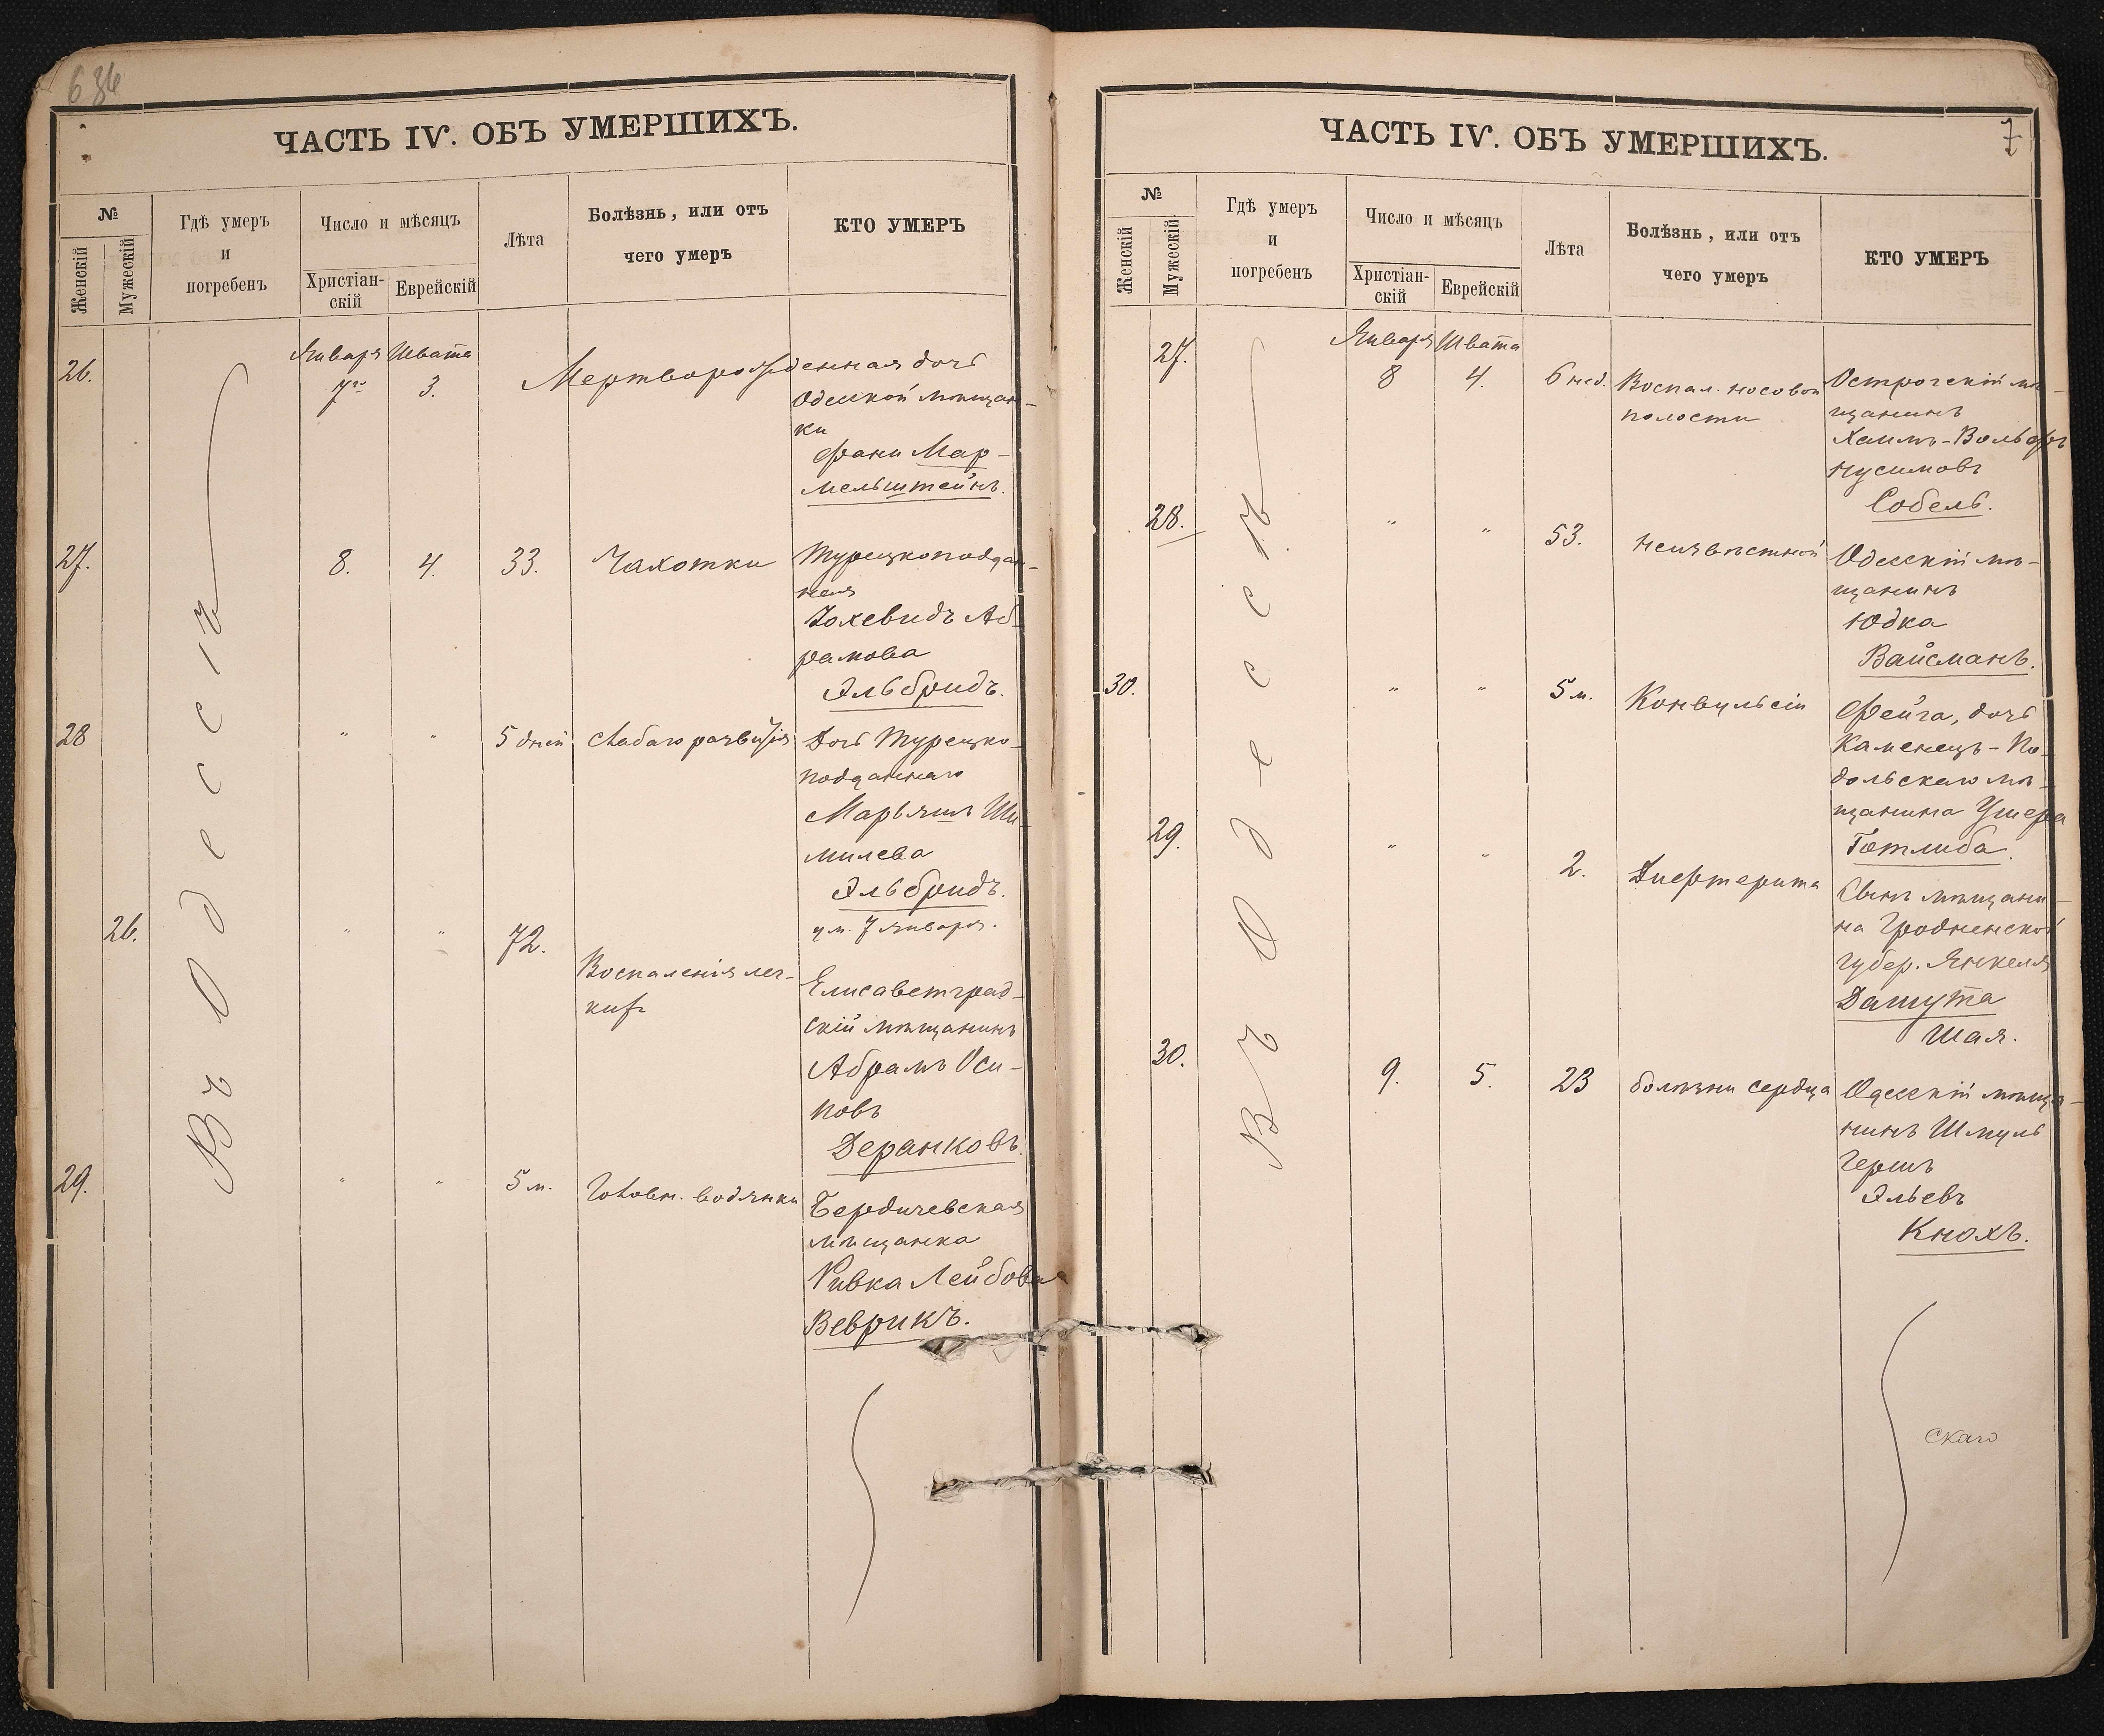 636
ЧАСТЬ IV. ОБЪ УМЕРШИХЪ.
№
Женскій
Мужескій
Гдѣ умеръ
и
погребенъ
Число и мѣсяцъ
Христіан-
скій
Еврейскій
Лѣта
Болѣзнь, или отъ
чего умеръ
КТО УМЕРЪ
Въ Одессѣ
26.
Января Швата
7го 3.
Мертворожденная дочь
Одесской мѣщан-
ки
Фани Мар-
мельштейнъ.
27.
8. 4. 33. Чахотки
Турецкоподдан-
ная
Іохевидъ Аб-
рамова
Эльбридъ.
28
" " 5 дней Слабаго развитія
Дочь Турецко-
подданнаго
Марьямъ Ши-
милева
Эльбридъ.
ум. 7 января.
26.
" " 72.
Воспаленія лег-
кихъ
Елисаветград-
скій мѣщанинъ
Абрамъ Оси-
повъ
Деранковъ.
29.
" " 5 м. Головн. водянки
Бердичевская
мѣщанка
Ривка Лейбова
Веврикъ.
7
ЧАСТЬ IV. ОБЪ УМЕРШИХЪ.
№
Женскій
Мужескій
Гдѣ умеръ
и
погребенъ
Число и мѣсяцъ
Христіан-
скій
Еврейскій
Лѣта
Болѣзнь, или отъ
чего умеръ
КТО УМЕРЪ
Въ Одессѣ
27.
Января Швата
8 4. 6 нед. Воспал. носовой
полости
Острогскій мѣ-
щанинъ
Хаимъ-Вольфъ
Нусимовъ
Собель.
28.
" " 53. неизвѣстной
Одесскій мѣ-
щанинъ
Юдка
Вайсманъ.
30.
" " 5 м. Конвульсіи
Фейга, дочь
Каменецъ-По-
дольскаго мѣ-
щанина Ушера
Готлиба.
29.
" " 2. Дифтерита
Сынъ мѣщани-
на Гродненской
губер. Янкеля
Дашута
Шая.
30.
9. 5. 23 болѣзни сердца
Одесскій мѣща-
нинъ Шмуль
Гершъ
Эльевъ
Кнохъ.
скаго